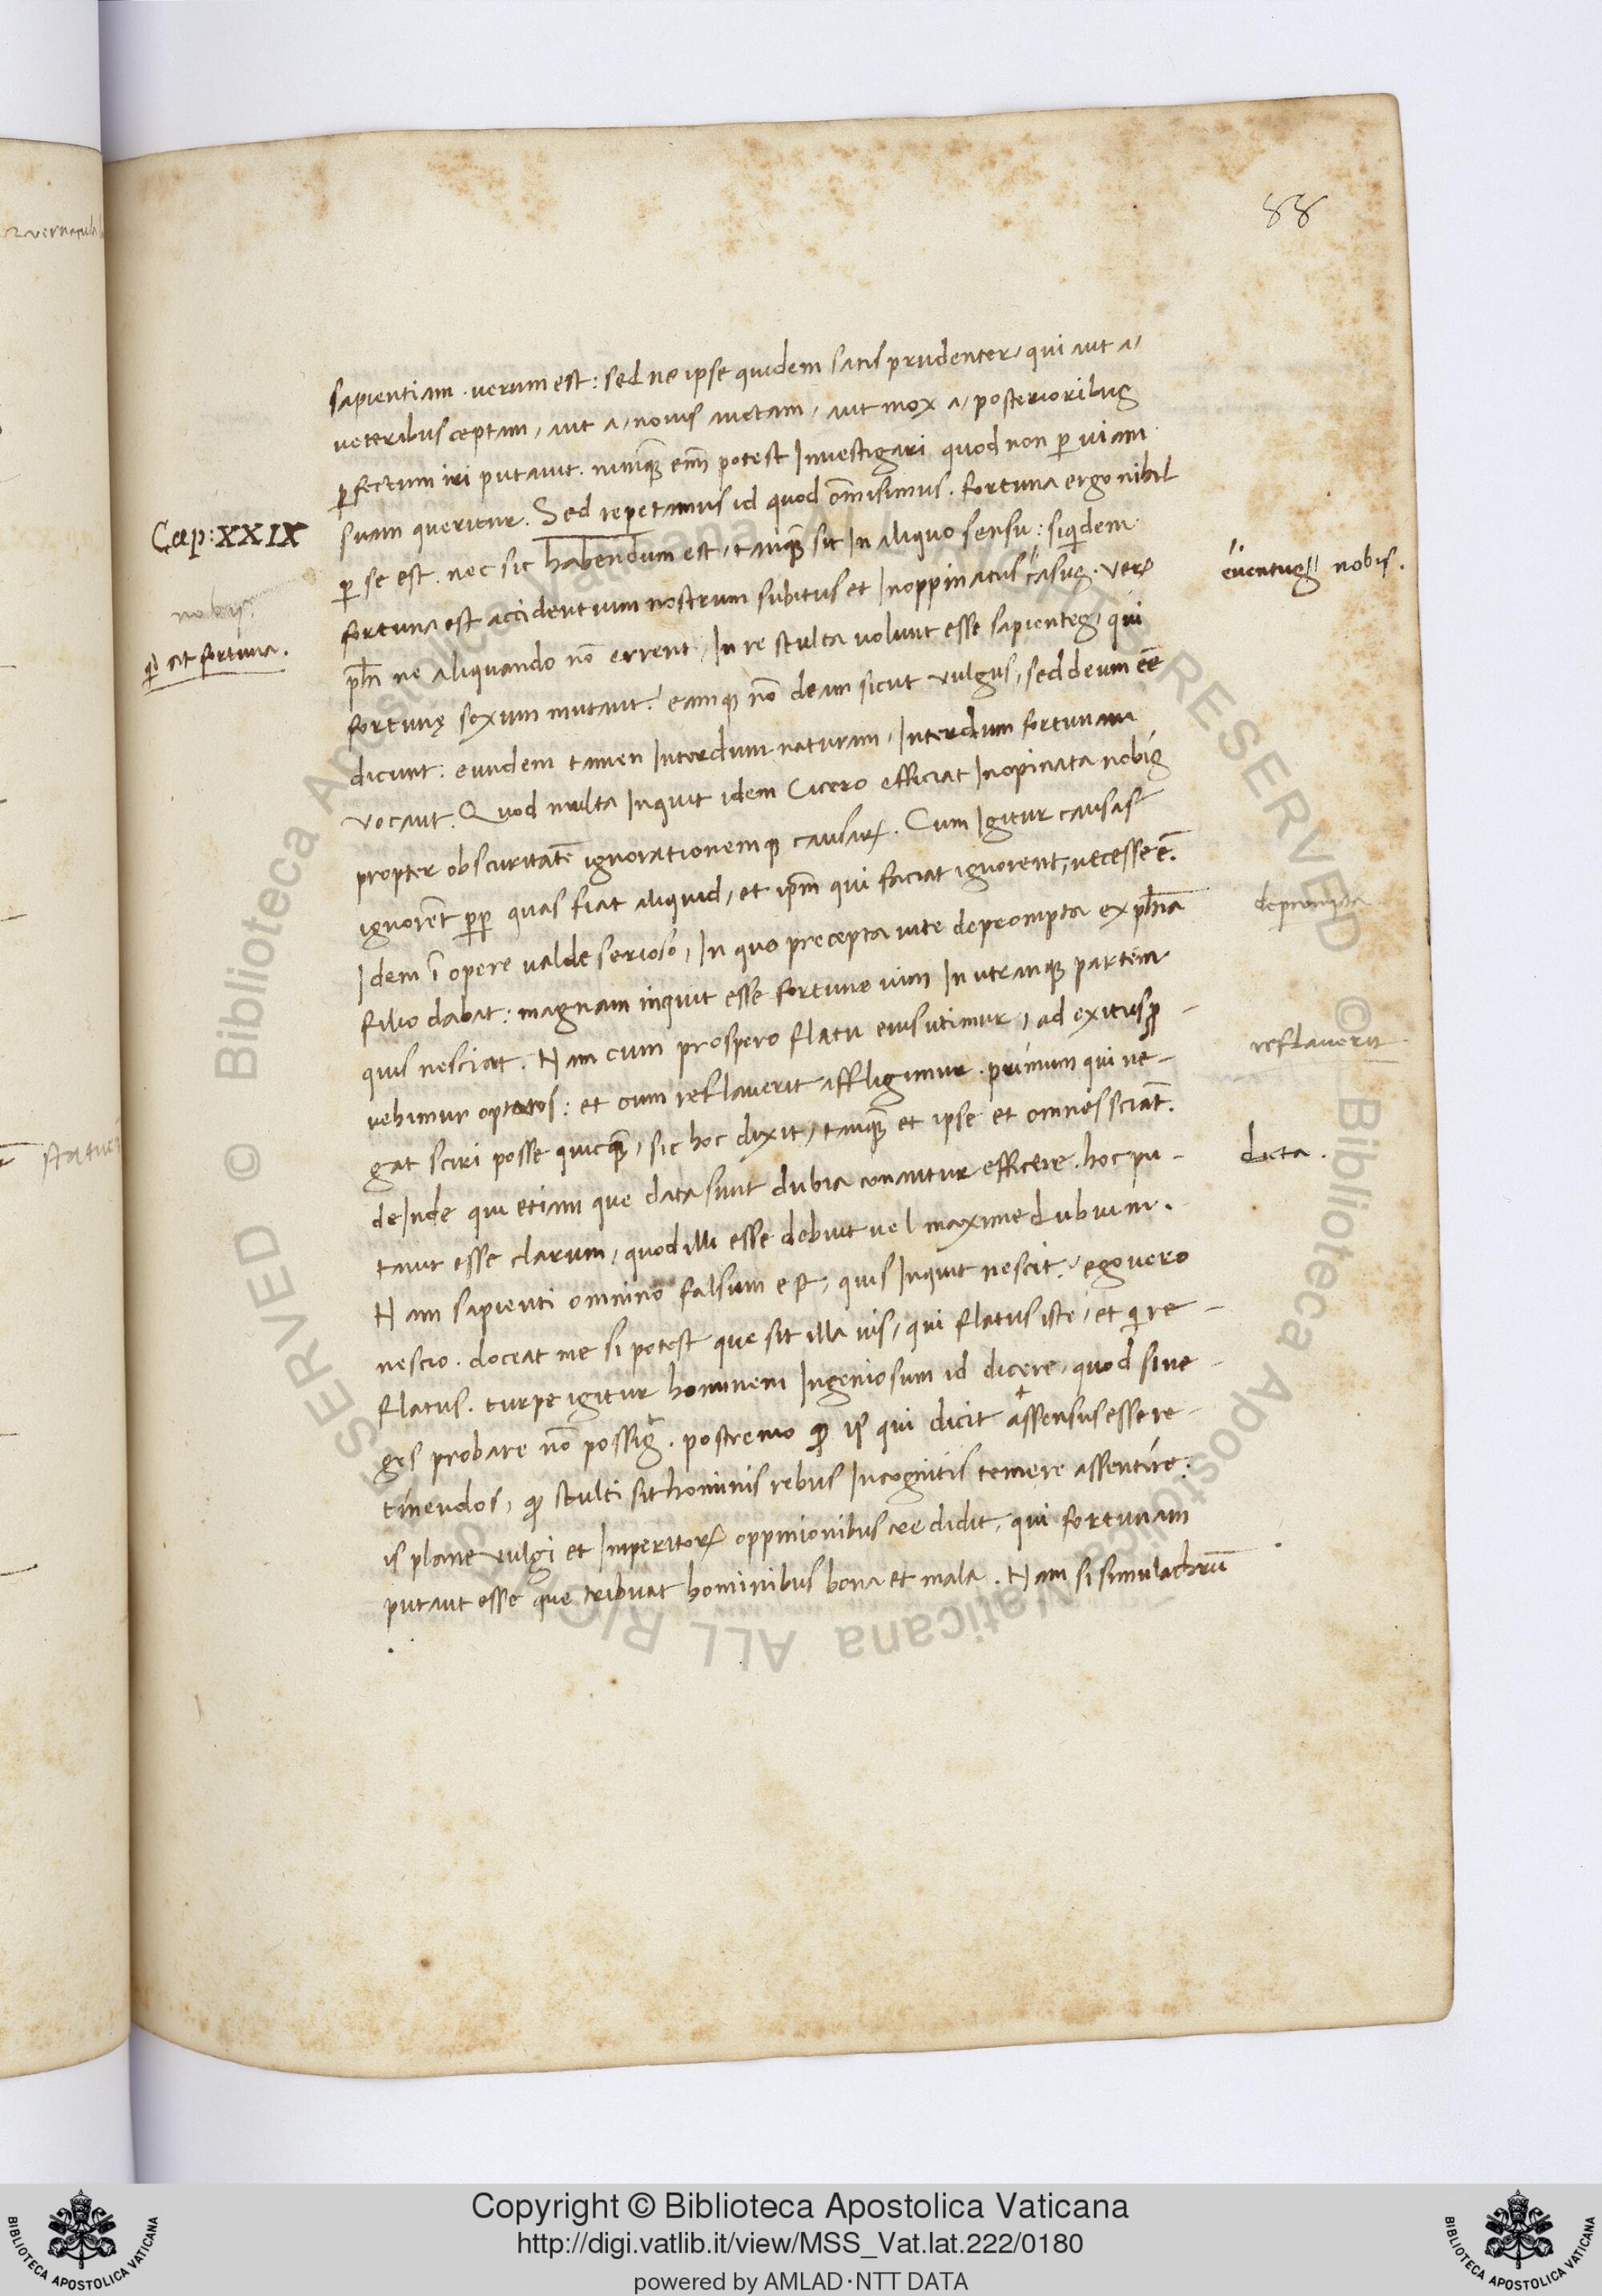 88
sapientiam. uerum est: sed ne ipse quidem satis prudenter, qui aut a,
ueteribus ceptam, aut a, nouis auctam, aut mox a, posterioribus
ꝑfectum iri putauit. nunꝗ̃ em̃ potest Inuestigari quod non ꝑ uiam
suam queritur. Sed repetamus id quod om̃isimus. fortuna ergo nihil
Cap: XXIX
ꝑ se est. nec sic habendum est, tanꝗ̃ sit In aliquo sensu: siqͥdem
fortuna est accidentium nostrum subitus et Inoppinatus casus. Verͦ
euentus nobis.
qͥd sit fortuna.
pħi ne aliquando nõ errent, In re stulta uolunt esse sapientes, qui
fortunę sexum mutant: eamqꝫ nõ deam sicut vulgus, sed deum eẽ
dicunt: eundem tamen Interdum naturam, Interdum fortunam
vocant. Quod multa Inquit idem Cicero efficiat Inopinata nobis
propter obscuritatẽ ignorationemqꝫ causaꝝ. Cum Igitur causas
ignorẽt ꝓpꝑ quas fiat aliquid, et ip̃m qui faciat ignorent, necesse ẽ.
Idem ĩ opere ualde serioso, In quo precepta uite deprompta ex pħia
deprompta
filio dabat: magnam inquit esse fortune uim In utranqꝫ partem
quis nesciat. Nam cum prospero flatu eius utimur, ad exitus ꝓ-
reflauerit
uehimur optatos: et cum reflauerit affligimur. primum qui ne-
gat sciri posse quicꝗ̃, sic hoc dixit, tanꝗ̃ et ipse et omnes sciãt.
deInde qui etiam que data sunt dubia conantur efficere. hoc pu-
data.
tauit esse clarum, quod illi esse debuit uel maxime dubium.
Nam sapienti omnino falsum est, quis Inquit nescit. ego uero
nescio. doceat me si potest que sit illa uis, qui flatus iste, et qͥ re-
flatus. turpe igitur hominem Ingeniosum id dicere, quod si ne-
ges probare nõ possis. postremo is qui dicit assensus esse re-
tinendos, ꝙ stulti sit hominis rebus Incognitis temere assentire:
is plane vulgi et Imperitoꝝ oppinionibus credidit, qui fortunam
putant esse que tribuat hominibus bona et mala. Nam si simulachrũ
Copyright © Biblioteca Apostolica Vaticana
http://digi.vatlib.it/view/MSS_Vat.lat.222/0180
powered by AMLAD·NTT DATA